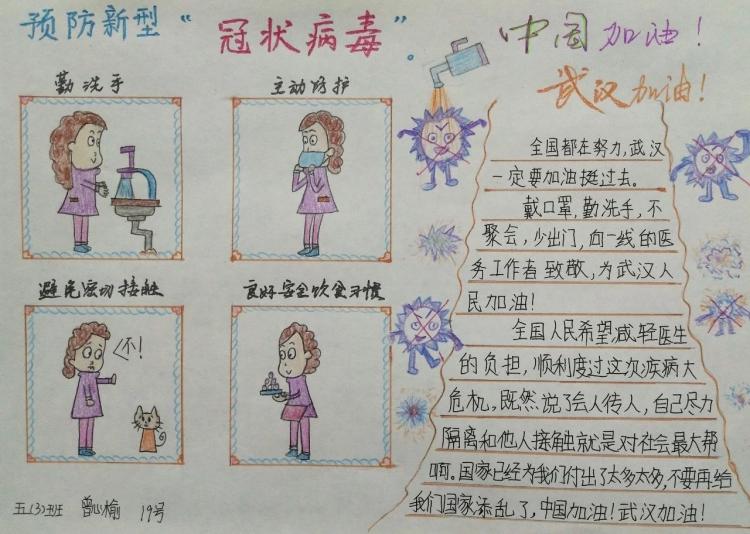 预防新型“冠状病毒”。
中国加油!
武汉加油!
勤洗手
主动防护
避免密切接触
良好安全饮食习惯
不!
全国都在努力,武汉
一定要加油挺过去。
戴口罩,勤洗手,不
聚会,少出门,向一线的医
务工作者致敬,为武汉人
民加油!
全国人民希望,减轻医生
的负担,顺利度过这次疾病大
危机,既然说了会人传人,自己尽力
隔离和他人接触就是对社会最大帮
啊。国家已经为我们付出了太多太多,不要再给
我们国家添乱了,中国加油!武汉加油!
五(3)班 曾心榆 19号